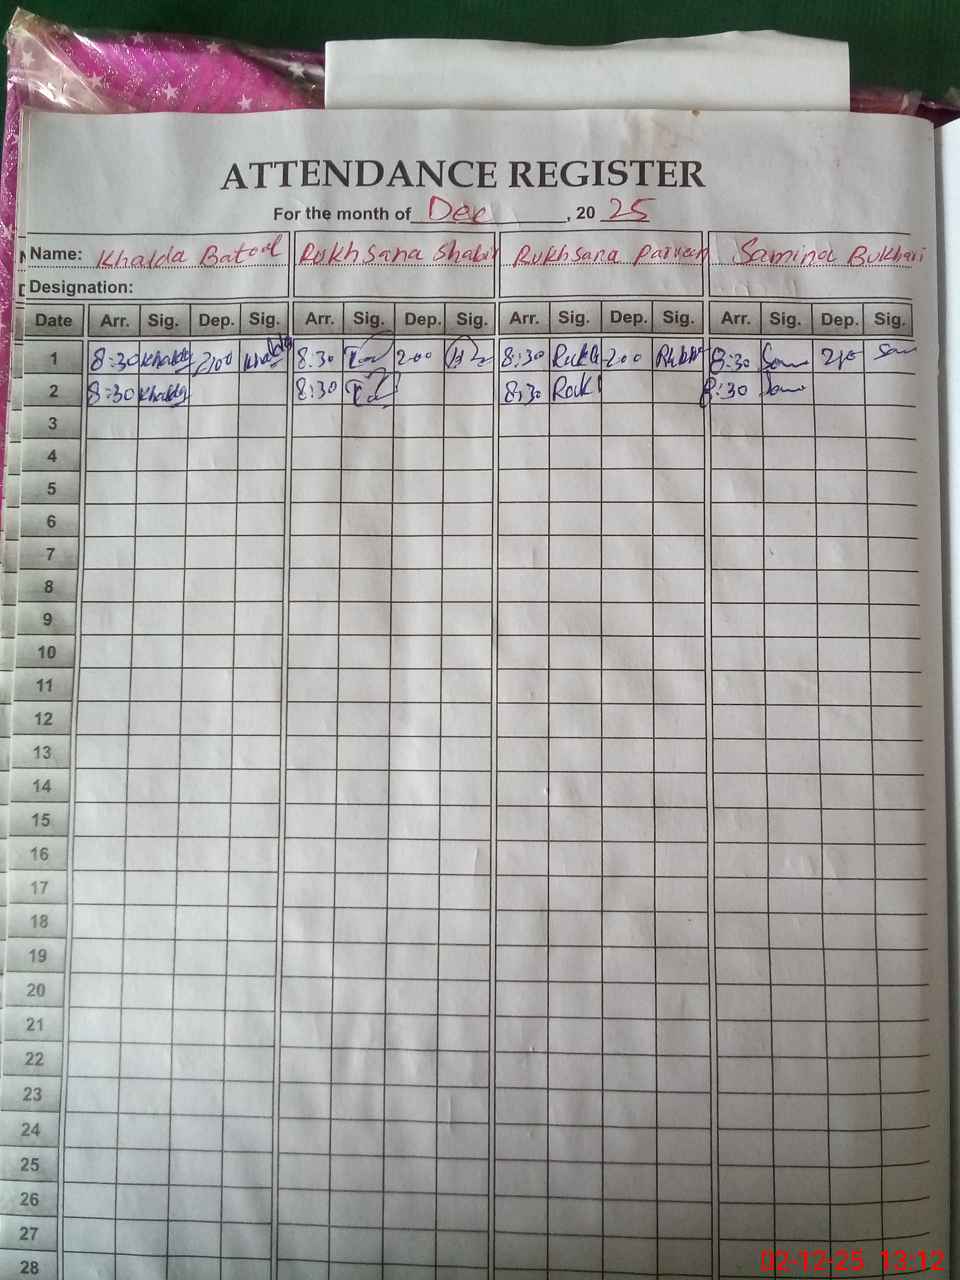 ATTENDANCE REGISTER
For the month of Dec, 2025
Name: Khalda Batool Rukhsana Shabir Rukhsana Parveen Samina Bukhari
Designation:
Date Arr. Sig. Dep. Sig. Arr. Sig. Dep. Sig. Arr. Sig. Dep. Sig. Arr. Sig. Dep. Sig.
1 8:30 Khalda 2:00 Khalda 8:30 2:00 8:30 2:00 8:30
2 8:30 Khalda 8:30 8:30 8:30
3
4
5
6
7
8
9
10
11
12
13
14
15
16
17
18
19
20
21
22
23
24
25
26
27
28
02-12-25 13:12